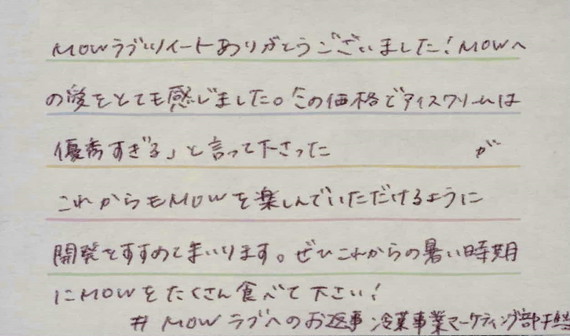 MOWラブツイートありがとうございました!MOWへ
の愛をとても感じました。「この価格でアイスクリームは
優秀すぎる」と言って下さった が
これからもMOWを楽しんでいただけるように
開発をすすめてまいります。ぜひこれからの暑い時期
にMOWをたくさん食べて下さい!
# MOWラブへのお返事 冷菓事業マーケティング部